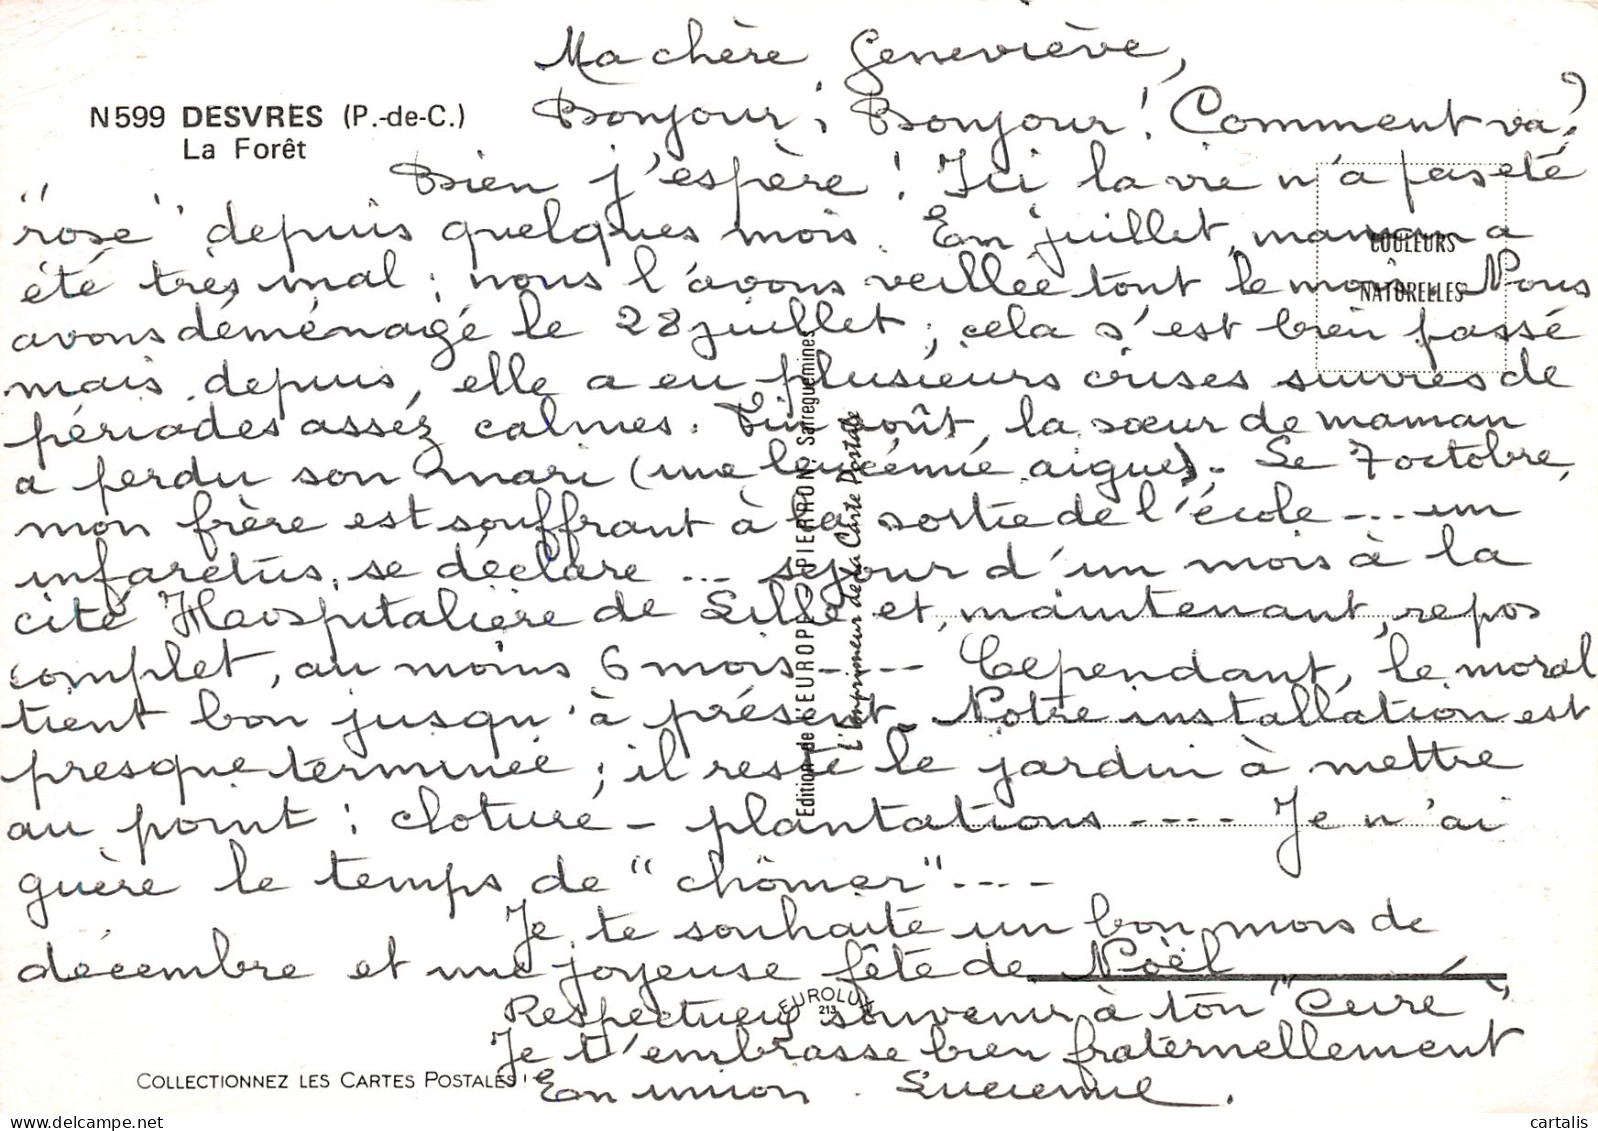 Ma chère Geneviève,
N599 DESVRES (P.-de-C.)
La Forêt
Bonjour, Bonjour ! Comment va ?
Bien j'espère ! Ici la vie n'a pas été
"rose" depuis quelques mois. En juillet, maman a
été très mal ; nous l'avons veillée tout le mois. Nous
avons déménagé le 28 juillet ; cela s'est bien passé
mais, depuis, elle a eu plusieurs crises suivies de
périodes assez calmes. Fin août, la sœur de maman
a perdu son mari (une leucémie aigue). Le 7 octobre,
mon frère est souffrant à la sortie de l'école --- un
infarctus, se déclare ... séjour d'un mois à la
cité Hospitalière de Lille et, maintenant, repos
complet, au moins 6 mois ---- Cependant, le moral
tient bon jusqu'à présent. Notre installation est
presque terminée ; il reste le jardin à mettre
au point : cloture - plantations ---- Je n'ai
guère le temps de "chômer" ----
Je te souhaite un bon mois de
décembre et une joyeuse fête de Noël
Respectueux souvenir à ton "Curé"
Je t'embrasse bien fraternellement
En union. Lucienne.
COULEURS
NATURELLES
Edition de L'EUROPE PIERRON. Sarreguemines
L'Imprimeur de la Carte Postale
EUROLUX
213
COLLECTIONNEZ LES CARTES POSTALES !
cartalis